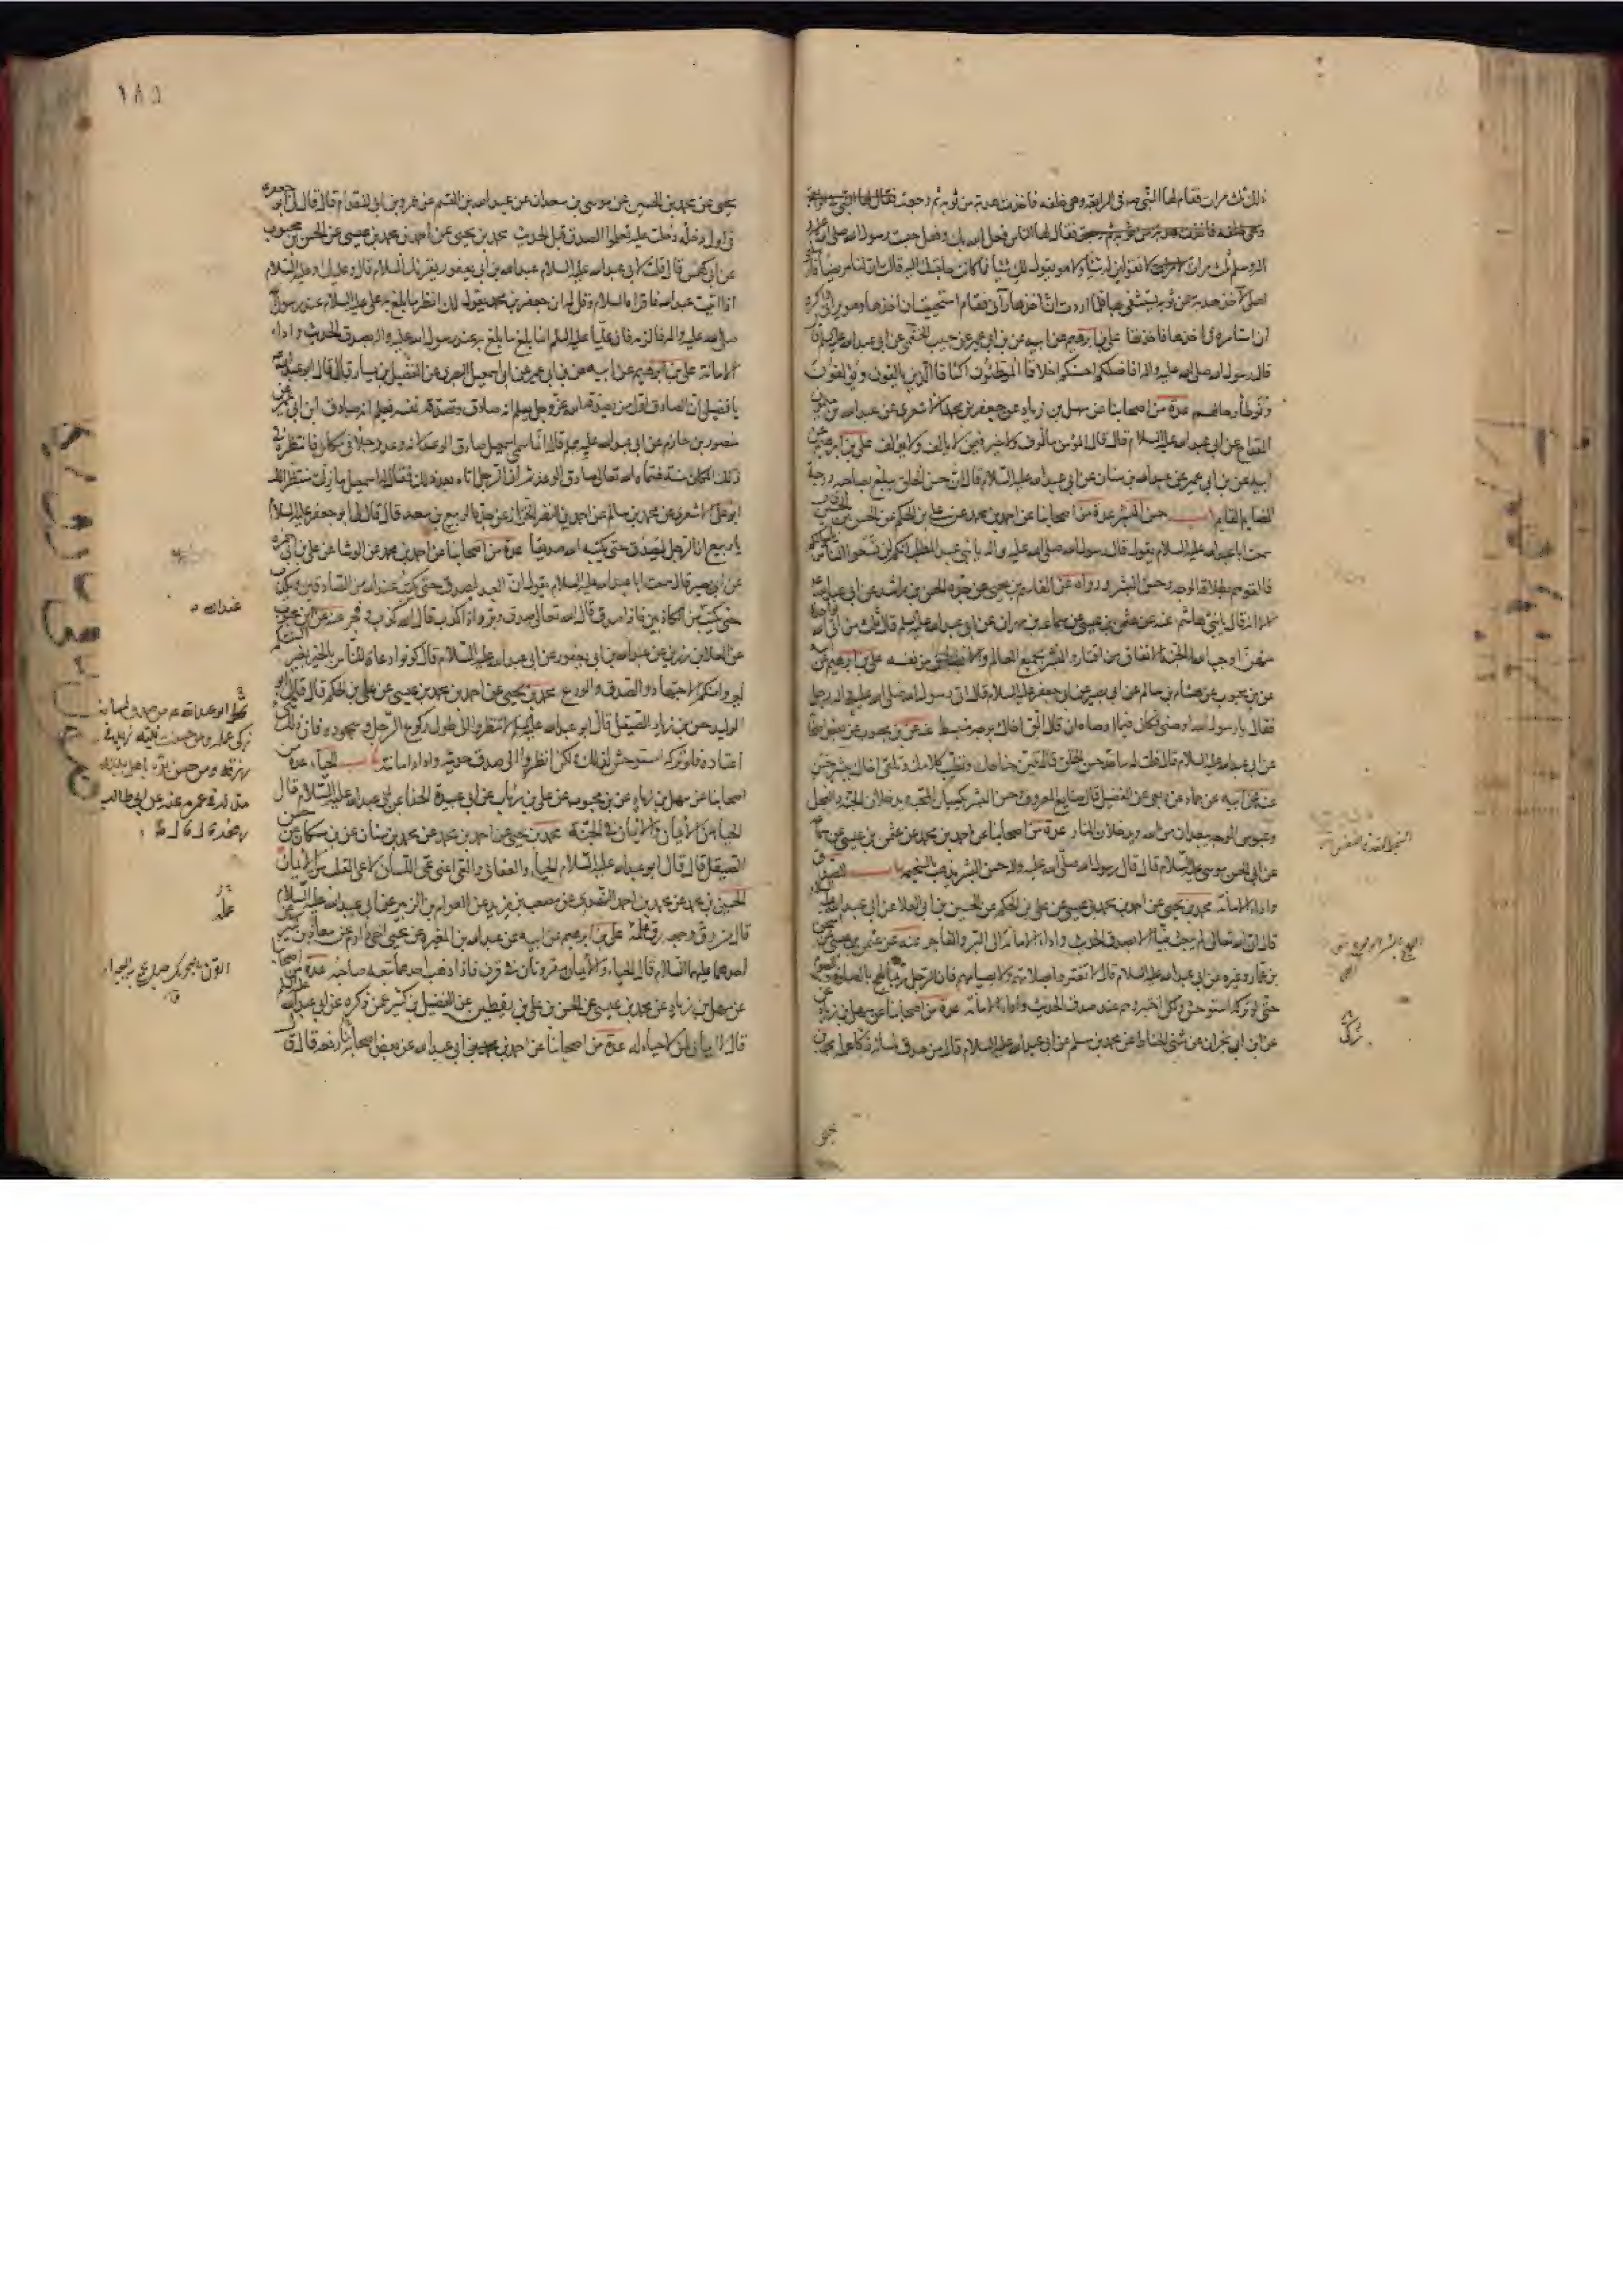 ذلك ثلث مرات فقام لها النبي صه في الرابعة وهي خلفه فاخذت هدبة من ثوبه ثم رجعت فقال لها
فقال لها الناس فعل الله بك وفعل حبست رسول الله صلى الله عليه
واله وسلم ثلث مرات لا تقولين له شيئا ولا هو يقول لك شيئا ما كانت حاجتك اليه قالت ان لنا مريضا فارسلني
اهلي لآخذ هدبة من ثوبه يستشفي بها فلما اردت ان آخذها رآني فقام استحييت ان آخذها وهو يراني واكره
ان استامره في اخذها فاخذتها علي بن ابرهيم عن ابيه عن بن ابي عمير عن حبيب الخثعمي عن ابي عبد الله عليه السلم قال
قال رسول الله صلى الله عليه واله افاضلكم احسنكم اخلاقا الموطئون اكنافا الذين يالفون ويؤلفون
وتوطأ رحالهم عدة من اصحابنا عن سهل بن زياد عن جعفر بن محمد الاشعري عن عبد الله بن ميمون
القداح عن ابي عبد الله عليه السلام قال قال المؤمن مالوف ولا خير فيمن لا يالف ولا يؤلف علي بن ابرهيم عن
ابيه عن بن ابي عمير عن عبد الله بن سنان عن ابي عبد الله عليه السلام قال ان حسن الخلق يبلغ بصاحبه درجة
الصايم القايم باب حسن البشر عدة من اصحابنا عن احمد بن محمد عن علي بن الحكم عن الحسن بن الحسين قال
سمعت ابا عبد الله عليه السلام يقول قال رسول الله صلى الله عليه واله يا بني عبد المطلب انكم لن تسعوا الناس باموالكم
فالقوهم بطلاقة الوجه وحسن البشر ورواه عن القاسم بن يحيى عن جده الحسن بن راشد عن ابي عبد الله عليه
السلم الا انه قال يا بني هاشم عنه عن عثمن بن عيسى عن سماعة بن مهران عن ابي عبد الله عليه السلم قال ثلث من اتى الله بواحدة
منهن اوجب الله له الجنة الانفاق من اقتار والبشر بجميع العالم والانصاف من نفسه علي بن ابرهيم عن
عن بن محبوب عن هشام بن سالم عن ابي بصير عن ابي جعفر عليه السلام قال اتى رسول الله صلى الله عليه واله رجل
فقال يا رسول الله اوصني فكان فيما اوصاه ان قال الق اخاك بوجه منبسط عنه عن بن محبوب عن بعض اصحابنا
عن ابي عبد الله عليه السلام قال قلت له ما حد حسن الخلق قال تلين جناحك وتطيب كلامك وتلقى اخاك ببشر حسن
عنه عن ابيه عن حماد عن ربعي عن الفضيل قال صنايع المعروف وحسن البشر يكسبان المحبة ويدخلان الجنة والبخل
وعبوس الوجه يبعدان من الله ويدخلان النار عدة من اصحابنا عن احمد بن محمد عن عثمن بن عيسى عن سماعة
عن ابي الحسن موسى عليه السلام قال قال رسول الله صلى الله عليه واله حسن البشر يذهب بالسخيمة باب الصدق
واداء الامانة محمد بن يحيى عن احمد بن محمد بن عيسى عن علي بن الحكم عن الحسين بن ابي العلا عن ابي عبد الله عليه السلام
قال ان الله تعالى لم يبعث نبيا الا بصدق الحديث واداء الامانة الى البر والفاجر عنه عن عثمن بن عيسى عن اسحق
بن عمار وغيره عن ابي عبد الله عليه السلام قال لا تغتروا بصلاتهم ولا بصيامهم فان الرجل ربما لهج بالصلوة والصوم
حتى لو تركه استوحش ولكن اختبروهم عند صدق الحديث واداء الامانة عدة من اصحابنا عن سهل بن زياد عن
عن ابن ابي نجران عن مثنى الحناط عن محمد بن مسلم عن ابي عبد الله عليه السلام قال من صدق لسانه زكا عمله محمد بن
زكى
١٨٥
يحيى عن محمد بن الحسين عن موسى بن سعدان عن عبد الله بن القسم عن عمرو بن ابي المقدام قال قال لي ابو جعفر ع
في اول دخلة دخلت عليه تعلموا الصدق قبل الحديث محمد بن يحيى عن احمد بن محمد بن عيسى عن الحسن بن محبوب
عن ابي كهمس قال قلت لابي عبد الله عليه السلام عبد الله بن ابي يعفور يقرئك السلام قال وعليك وعليه السلام
اذا اتيت عبد الله فاقراه السلام وقل له ان جعفر بن محمد يقول لك انظر ما بلغ به علي عليه السلام عند رسول الله
صلى الله عليه واله فالزمه فان عليا عليه السلم انما بلغ ما بلغ به عند رسول الله عليه واله بصدق الحديث واداء
الامانة علي بن ابرهيم عن ابيه عن بن ابي عمير عن ابي اسمعيل البصري عن الفضيل بن يسار قال قال ابو عبد الله ع
يا فضيل ان الصادق اول من يصدقه الله عز وجل يعلم انه صادق وتصدقه نفسه تعلم انه صادق ابن ابي عمير عن
منصور بن حازم عن ابي عبد الله عليه السلم قال انما سمي اسمعيل صادق الوعد لانه وعد رجلا في مكان فانتظره في
ذلك المكان سنة فسماه الله تعالى صادق الوعد ثم ان الرجل اتاه بعد ذلك فقال له اسمعيل ما زلت منتظرا لك
ابو علي الاشعري عن محمد بن سالم عن احمد بن النضر الخزاز عن جده الربيع بن سعد قال قال لي ابو جعفر عليه السلام
يا ربيع ان الرجل ليصدق حتى يكتبه الله صديقا عدة من اصحابنا عن احمد بن محمد عن الوشا عن علي بن ابي حمزة
عن ابي بصير قال سمعت ابا عبد الله عليه السلام يقول ان العبد ليصدق حتى يكتب عند الله من الصادقين ويكذب
حتى يكتب من الكاذبين فاذا صدق قال الله تعالى صدق وبر واذا كذب قال الله كذب وفجر عنه عن ابن محبوب
عن العلا بن رزين عن عبد الله بن ابي يعفور عن ابي عبد الله عليه السلام قال كونوا دعاة للناس بالخير بغير السنتكم
ليروا منكم الاجتهاد والصدق والورع محمد بن يحيى عن احمد بن محمد بن عيسى عن علي بن الحكم قال قال ابو
الوليد حسن بن زياد الصيقل قال ابو عبد الله عليه السلم لا تنظروا الى طول ركوع الرجل وسجوده فان ذلك شيء
اعتاده فلو تركه استوحش لذلك ولكن انظروا الى صدق حديثه واداء امانته باب الحياء عدة من
اصحابنا عن سهل بن زياد عن بن محبوب عن علي بن رئاب عن ابي عبيدة الحذا عن ابي عبد الله عليه السلام قال
الحياء من الايمان والايمان في الجنة محمد بن يحيى عن احمد بن محمد عن محمد بن سنان عن بن مسكان عن حسن
الصيقل قال قال ابو عبد الله عليه السلام الحياء والعفاف والعي اعني عي اللسان لا عي القلب من الايمان
الحسين بن محمد عن محمد بن احمد النهدي عن مصعب بن يزيد عن العوام بن الزبير عن ابي عبد الله عليه السلام
قال من رق وجهه رق علمه علي بن ابرهيم عن ابيه عن عبد الله بن المغيرة عن يحيى اخي دارم عن معاذ بن كثير عن
احدهما عليهما السلام قال الحياء والايمان مقرونان في قرن فاذا ذهب احدهما تبعه صاحبه عدة من اصحابنا
عن سهل بن زياد عن محمد بن عيسى عن الحسن بن علي بن يقطين عن الفضيل بن كثير عن ذكره عن ابي عبد الله عليه السلام
قال لا ايمان لمن لا حياء له عدة من اصحابنا عن احمد بن محمد بن ابي عبد الله عن بعض اصحابنا رفعه قال ق
عند الله
عمله